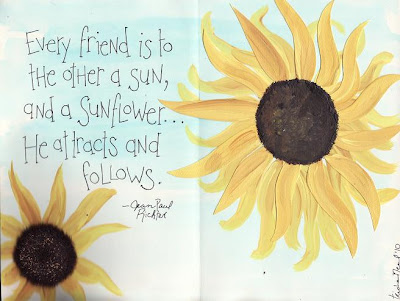 Every friend is to
the other a sun,
and a sunflower...
He attracts and
follows.
—Jean Paul
Richter
'10